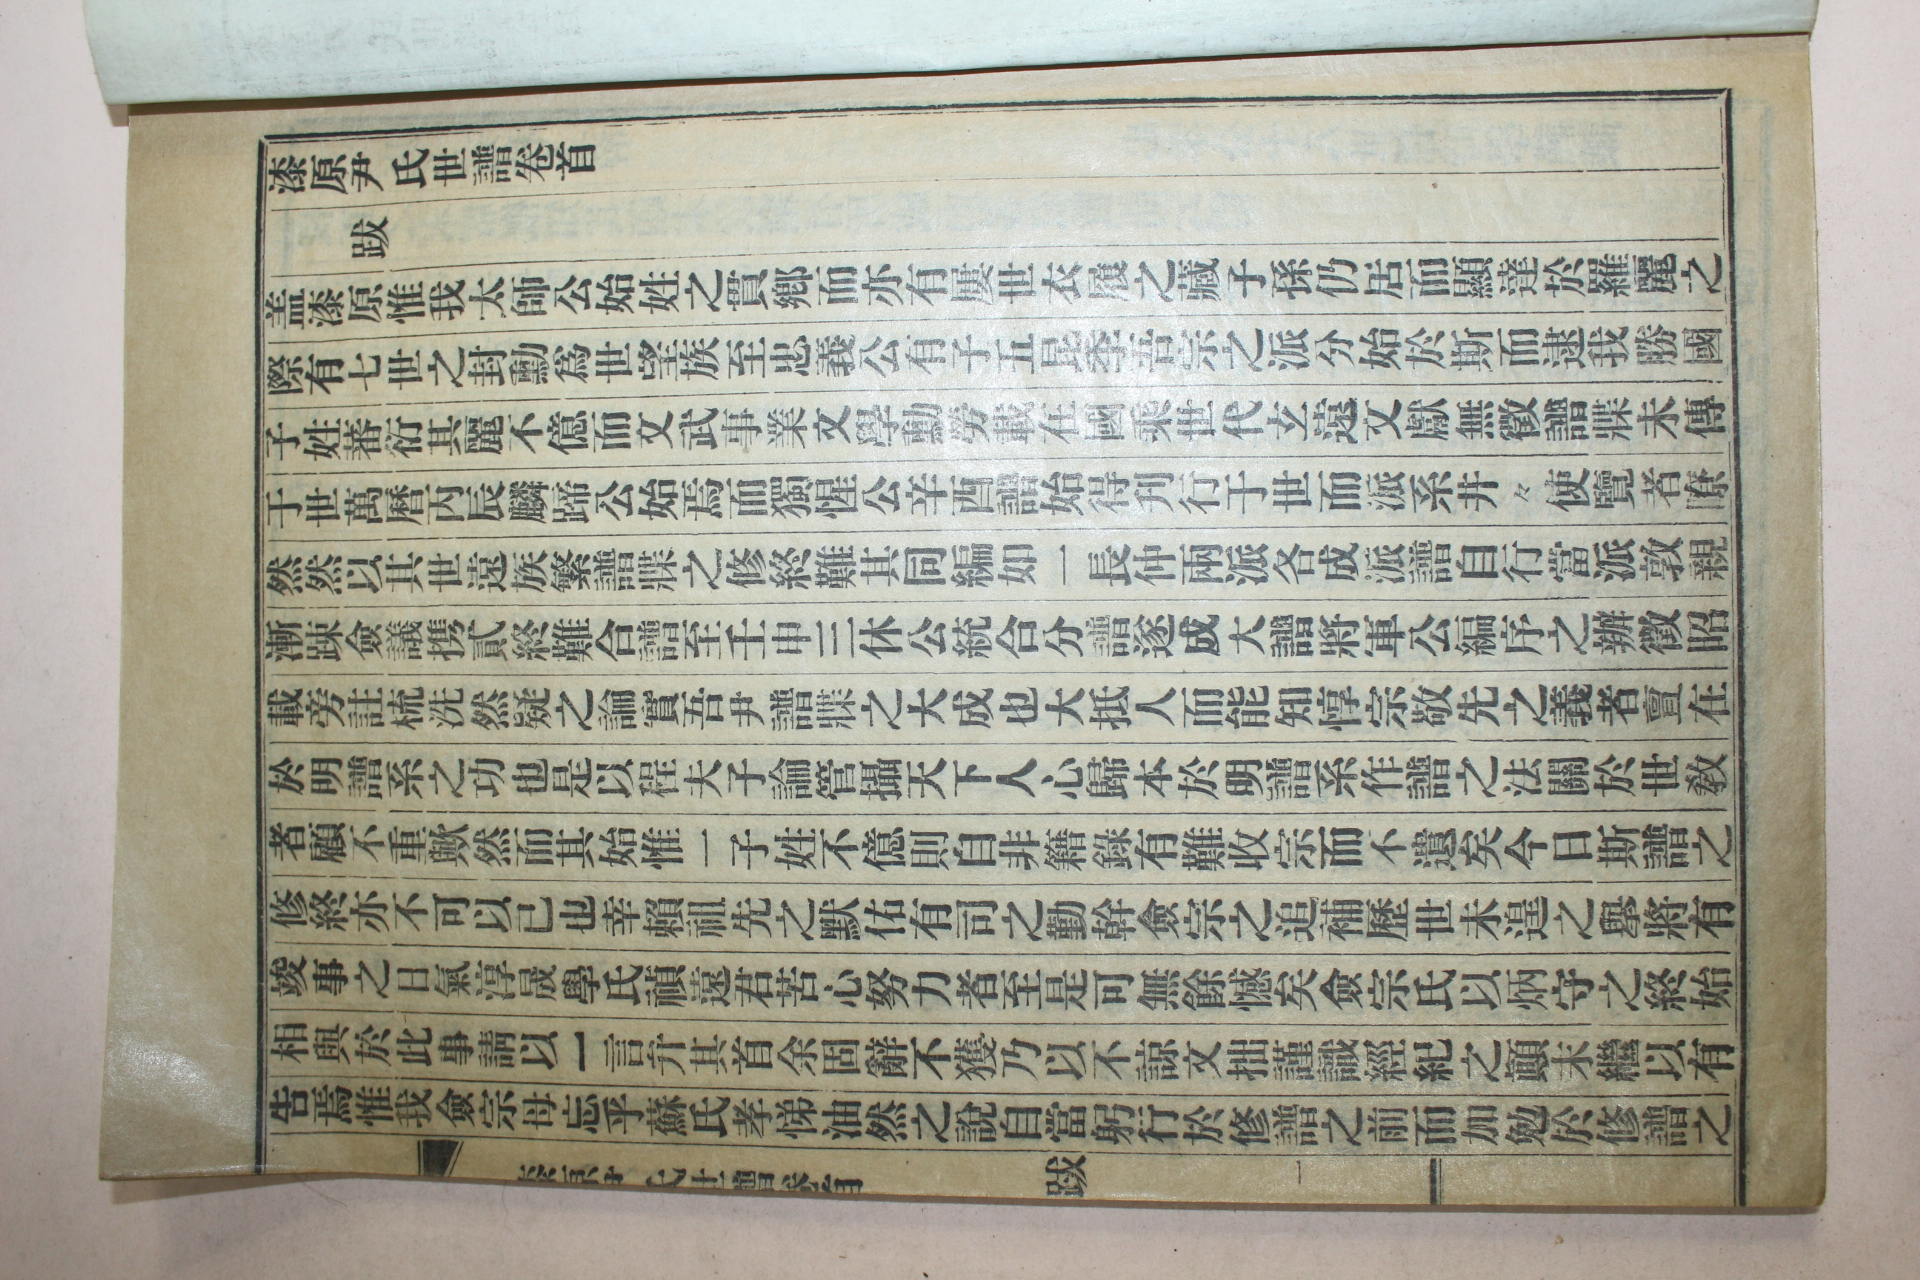 漆原尹氏世譜卷首
跋
盖漆原惟我太師公始姓之貫鄕而亦有屢世衣履之藏子孫仍居而顯達於羅麗之
際有七世之封勳爲世望族至忠義公有子五昆季吾宗之派分始於斯而逮我勝國
子姓蕃衍其麗不億而文武事業文學勳勞載在國乘世代玄遠文獻無徵譜牒未傳
于世萬曆丙辰麟蹄公始焉而獨惺公辛酉譜始得刋行于世而派系井々使覽者瞭
然然以其世遠族繁譜牒之修終難其同編如一長仲兩派各成派譜自行當派敦親
漸踈僉議携貳終難合譜至壬申三休公統合分譜遂成大譜將軍公編序之辦徵昭
載旁註梳洗然疑之論實吾尹譜牒之大成也大抵人而能知惇宗敬先之義者亶在
於明譜系之功也是以程夫子論管攝天下人心歸本於明譜系作譜之法關於世敎
者顧不重歟然而其始惟一子姓不億則自非籍錄有難收宗而不遺矣今日斯譜之
修終亦不可以已也幸賴祖先之默佑有司之勤幹僉宗之追補歷世未遑之擧將有
竣事之日氣淳晟學氏禎遠君苦心努力者至是可無餘憾矣僉宗氏以炳守之終始
相與於此事請以一言弁其首余固辭不獲乃以不諒文拙謹識經紀之顚末繼以有
告焉惟我僉宗毋忘乎蘇氏孝悌油然之說自當躬行於修譜之前而加勉於修譜之
漆原尹氏世譜卷首　跋　一